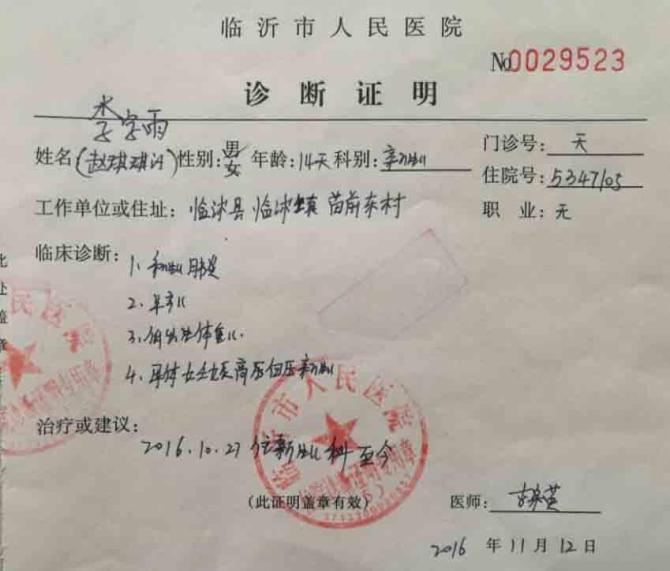 临沂市人民医院
No0029523
诊断证明
李宇雨
姓名(赵琪琪) 性别:男女 年龄:14天 科别:新生儿
门诊号:无
住院号:5347105
工作单位或住址:临沭县临沭镇苗前东村
职 业:无
临床诊断:1、新生儿肺炎
2、早产儿
3、低出生体重儿
4、母体妊娠高血压新生儿
治疗或建议:
2016.10.27住新生儿科至今
(此证明盖章有效)
医师:
2016 年11月12日
临沂市人民医院